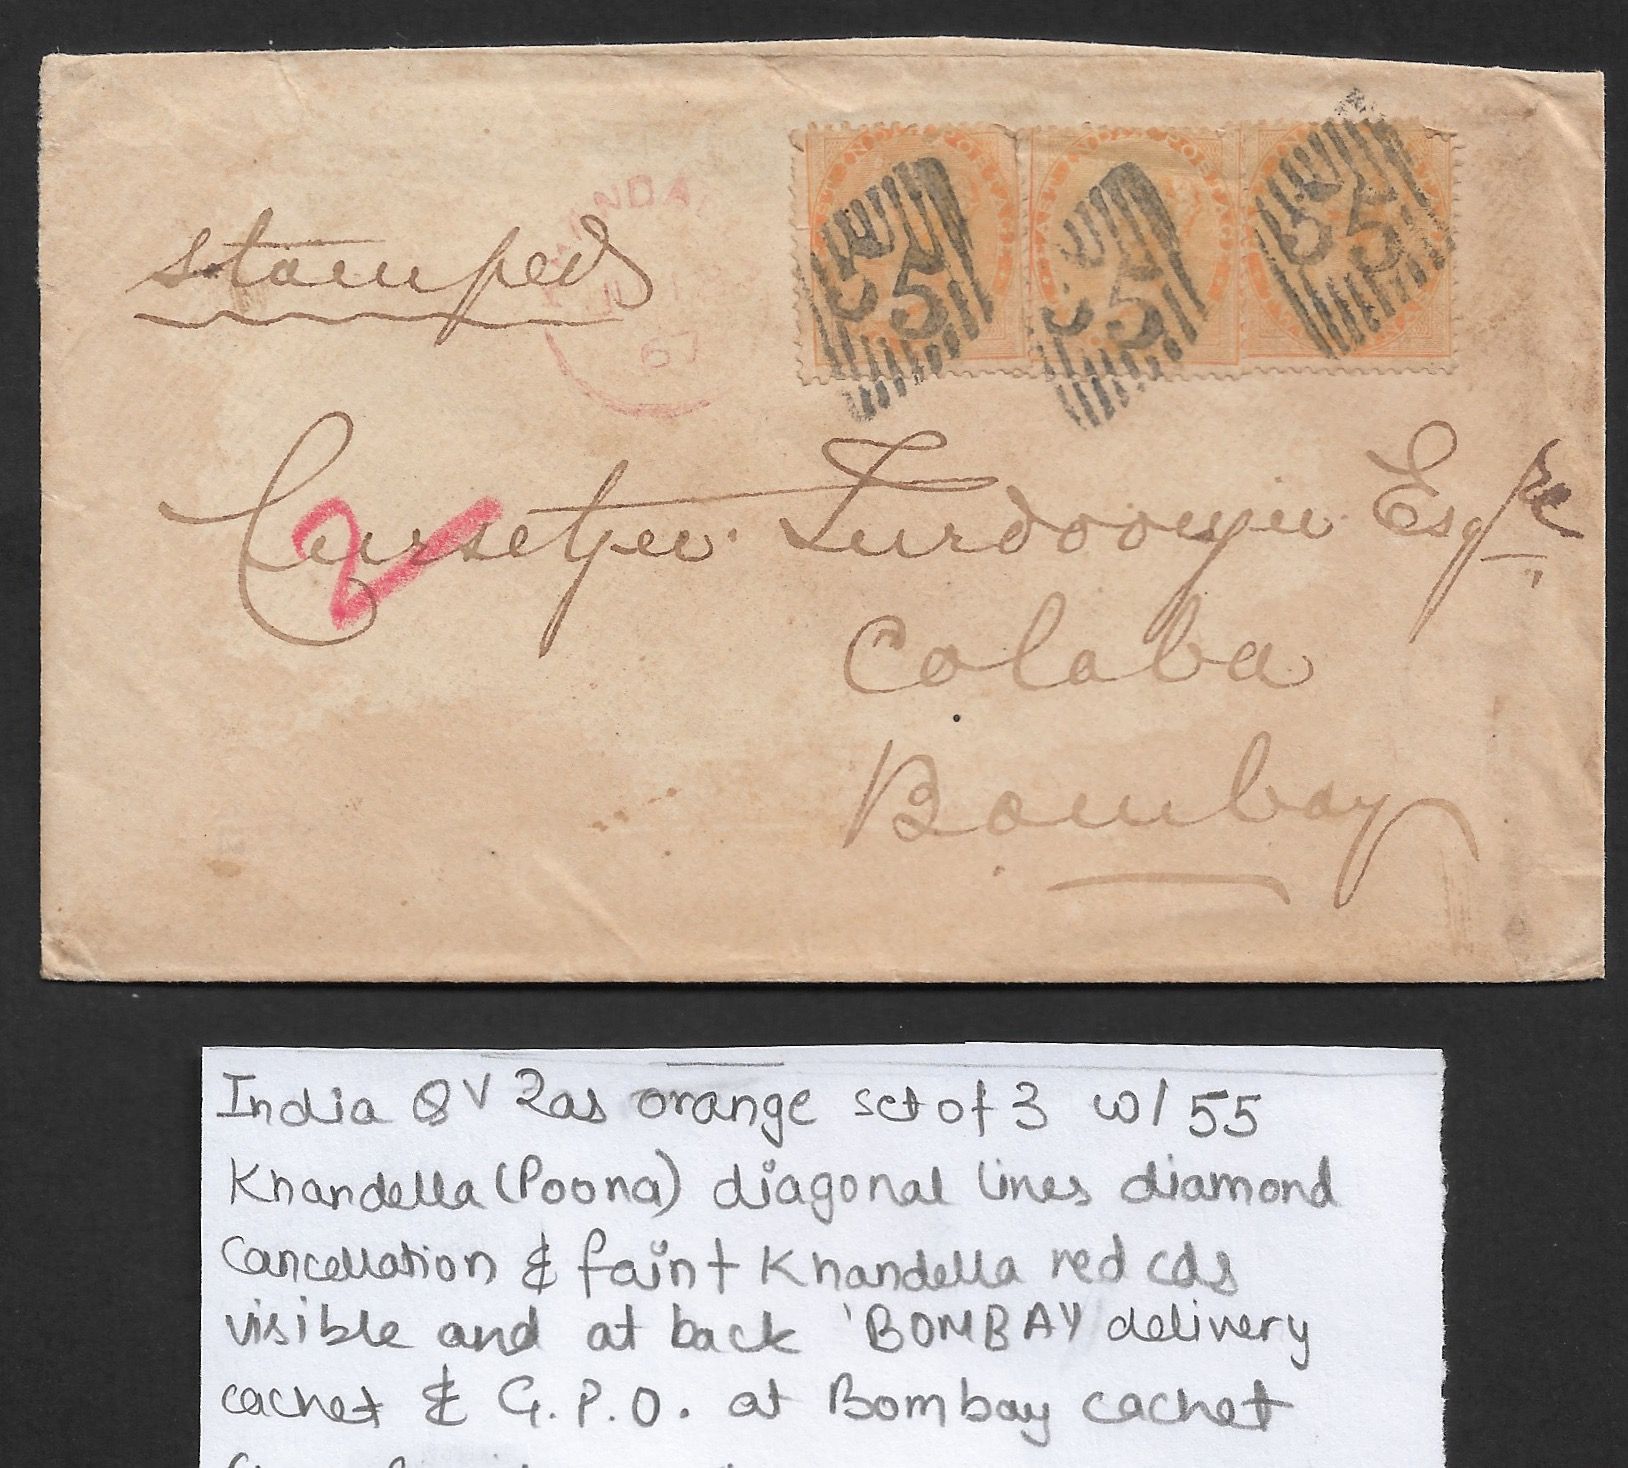 stamped
NDA
67
EAST INDIA POSTAGE
55
55
55
2
Cursetjee Furdoonjee Esqre
Colaba
Bombay
India QV 2as orange set of 3 w/ 55
Khandella (Poona) diagonal lines diamond
Cancellation & faint Khandella red cds
visible and at back 'BOMBAY' delivery
cachet & G.P.O. at Bombay cachet